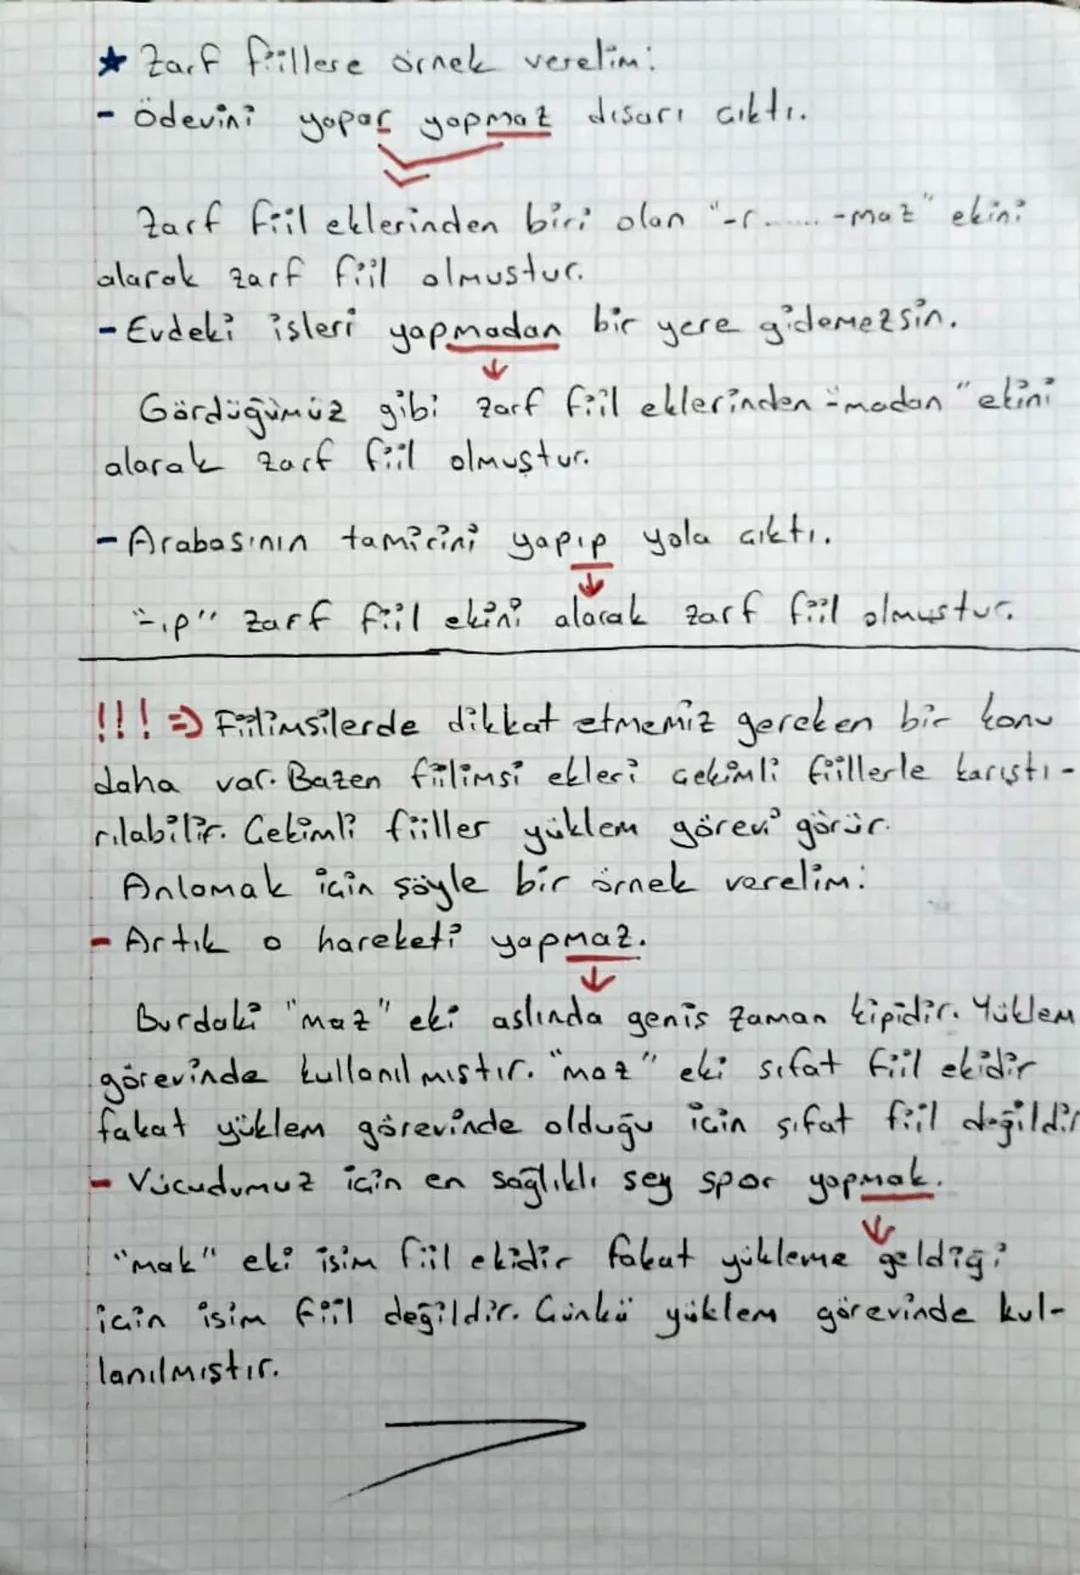 ★ Zarf fiillere örnek verelim:
- Ödevini yapar yapmaz dısarı çıktı.
Zarf fiil eklerinden biri olan "-r...... -maz" ekini
alarak zarf fiil olmustur.
- Evdeki işleri yapmadan bir yere gidemezsin.
Gördüğümüz gibi zarf fiil eklerinden "-madan" ekini
alarak zarf fiil olmuştur.
- Arabasının tamirini yapıp yola çıktı.
"-ıp" zarf fiil ekini alarak zarf fiil olmuştur.
!!! => Fiilimsilerde dikkat etmemiz gereken bir konu
daha var. Bazen fiilimsi ekleri çekimli fiillerle karıştı-
rılabilir. Çekimli fiiller yüklem görevi görür.
Anlamak için şöyle bir örnek verelim:
- Artık o hareketi yapmaz.
Burdaki "maz" eki aslında geniş zaman kipidir. Yüklem
görevinde kullanılmıştır. "maz" eki sıfat fiil ekidir
fakat yüklem görevinde olduğu için sıfat fiil değildir
- Vücudumuz için en sağlıklı şey spor yapmak.
"mak" eki isim fiil ekidir fakat yükleme geldiği
için isim fiil değildir. Çünkü yüklem görevinde kul-
lanılmıştır.